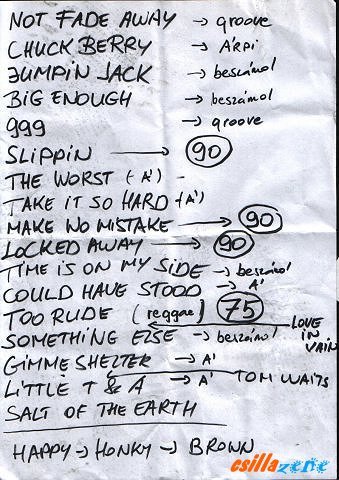 NOT FADE AWAY → groove
CHUCK BERRY → ÁRPI
JUMPIN JACK → beszámol
BIG ENOUGH → beszámol
999 → groove
SLIPPIN → 90
THE WORST (-A') -
TAKE IT SO HARD (-A')
MAKE NO MISTAKE → 90
LOCKED AWAY → 90
TIME IS ON MY SIDE → beszámol
COULD HAVE STOOD → A'
TOO RUDE (reggae) 75
← LOVE IN VAIN
SOMETHING ELSE → beszámol
GIMME SHELTER → A'
← TOM WAITS
LITTLE T & A → A'
SALT OF THE EARTH
HAPPY → HONKY → BROWN
csillazene